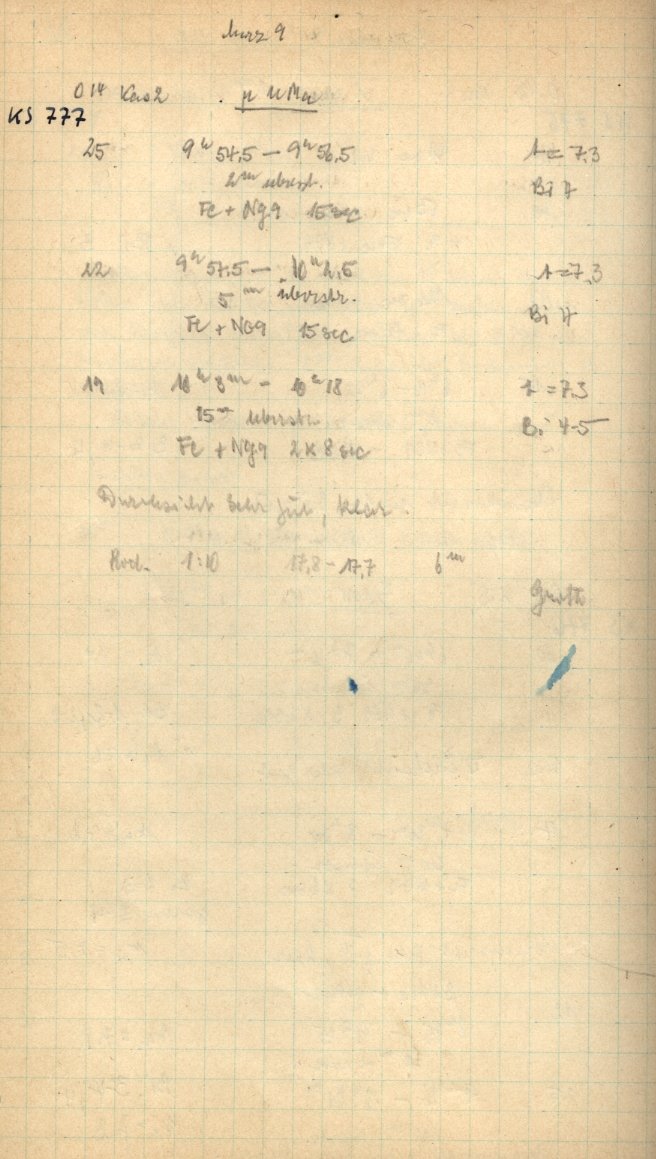 März 9
014 Kas2 μ UMa
KS 777
25 9ʰ 54,5 — 9ʰ 56,5 t = 7,3
2ᵐ überst. Bi 4
Fe + Ng9 15 sec
22 9ʰ 57,5 — 10ʰ 2,5 t = 7,3
5ᵐ überstr. Bi 4
Fe + Ng9 15 sec
19 10ʰ 3ᵐ — 10ʰ 18 t = 7,3
15ᵐ überstr. Bi 4-5
Fe + Ng9 2 x 8 sec
Durchsicht sehr gut, klar.
1:10 17,8 - 17,7 6ᵐ